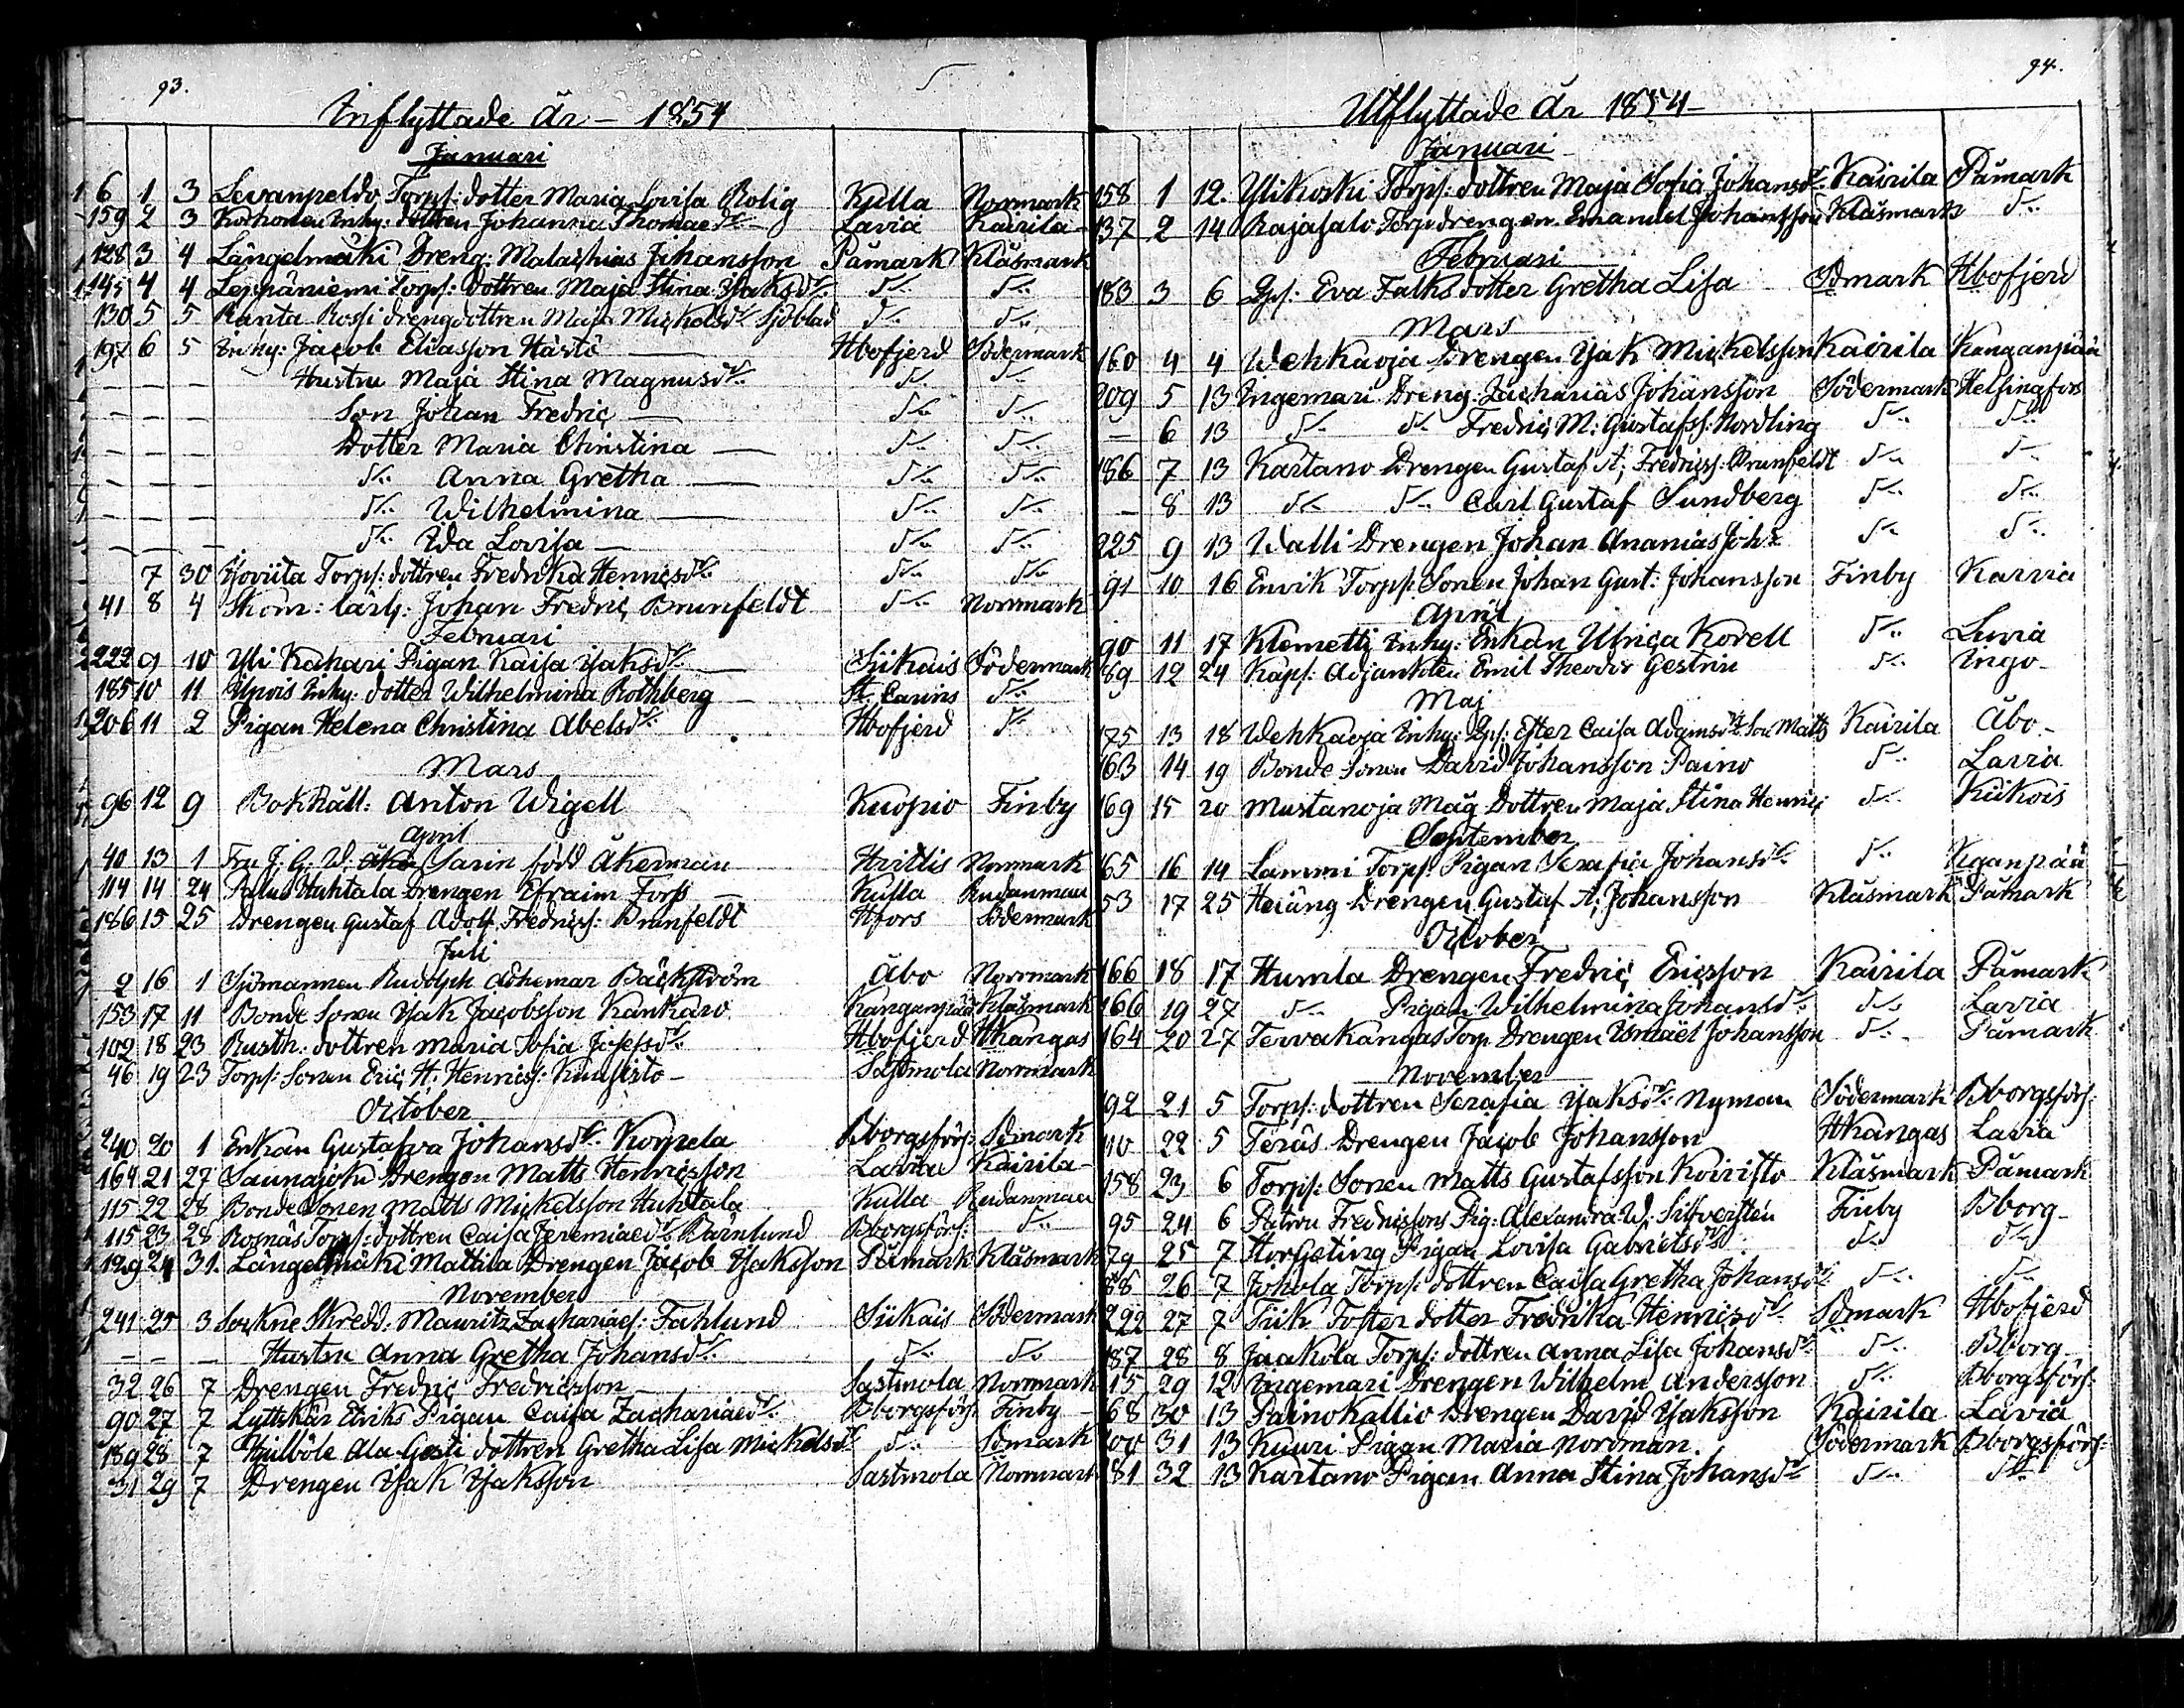 93.
Inflyttade År - 1854
Januari
6 1 3 Levanpeldo Torps: dotter Maria Lovisa Rolig Kulla Norrmark
159 2 3 Korhonen Inhy: dottren Johanna Thomaed:r Lavia Kairila
128 3 4 Längelmäki Dreng: Malachias Johansson Påmark Klåsmark
145 4 4 Leppäniemi Torps: dottren Maja Stina Isaksd:r D:o D:o
130 5 5 Ranta Rossi drengdottren Maja Mickelsd:r Sjöblad D:o D:o
197 6 5 Inhy: Jacob Eliasson Härtö Hbofjerd Södermark
— — — Hustru Maja Stina Magnusd:r D:o D:o
— — — Son Johan Fredric D:o D:o
— — — Dotter Maria Christina D:o D:o
— — — D:o Anna Gretha D:o D:o
— — — D:o Wilhelmina D:o D:o
— — — D:o Ida Lovisa D:o D:o
7 30 Torps: dottren Fredrika Henricsd:r D:o D:o
41 8 4 Skom: lärl: Johan Fredric Brunfeldt D:o Norrmark
Februari
222 9 10 Yli Kahari Pigan Kaisa Isaksd:r Siikais Södermark
185 10 11 Inhy: dotter Wilhelmina Rothberg St. Carins D:o
206 11 2 Pigan Helena Christina Abelsd:r Hbofjerd D:o
Mars
96 12 9 Bokhåll: Anton Wigell Kuopio Finby
April
40 13 1 Fru J. G. W. Sarin född Åkerman Hvittis Norrmark
114 14 24 Huhtala Drengen Efraim Fors Kulla Rudanmaa
186 15 25 Drengen Gustaf Adolf Fredricss: Brunfeldt Hfors Södermark
Juli
2 16 1 Sjömannen Rudolph Adhemar Bäckström Åbo Norrmark
153 17 11 Bonde Sonen Isak Jacobsson Kankaro Kanganpää Klåsmark
102 18 23 Rusth: dottren Maria Sofia Josefsd:r Hbofjerd Hkangas
46 19 23 Torps: Sonen Eric H: Henricss: Kuusisto Sastmola Norrmark
October
240 20 1 Enkan Gustafva Johansd:r Korpela Bborgsförs: Sdmark
164 21 27 Saunajoki Drengen Matts Henricsson Lavia Kairila
115 22 28 Bonde Sonen Matts Mickelsson Huhtala Kulla Rudanmaa
115 23 28 Rosnäs Torps: dottren Caisa Jeremiaed:r Bärnlund Bborgsförs: D:o
129 24 31. Längelmäki Mattila Drengen Jacob Isaksson Påmark Klåsmark
November
241 25 3 Sockne Skredd: Mauritz Zachariaes: Fahlund Siikais Södermark
— — — Hustru Anna Gretha Johansd:r D:o D:o
32 26 7 Drengen Fredric Fredricsson Sastmola Norrmark
90 27 7 Lyttskär Eriks Pigan Caisa Zachariaed:r Bborgsförs: Finby
189 28 7 Hjulböle Ala Gosti dottren Gretha Lisa Mickelsd:r D:o Sdmark
31 29 7 Drengen Isak Isaksson Sastmola Norrmark
94.
Utflyttade År 1854
Januari
158 1 12. Ylikoski Torps: dottren Maja Sofia Johansd:r Kairila Påmark
137 2 14 Rajasalo Torpdrengen Emanuel Johansson Klåsmark D:o
Februari
183 3 6 Qps: Eva Falks dotter Gretha Lisa Sdmark Hbofjerd
Mars
160 4 4 Wehkaoja Drengen Isak Mickelsson Kairila Kanganpää
209 5 13 Ingemari Dreng: Zacharias Johansson Södermark Helsingfors
— 6 13 D:o D:o Fredric M: Gustafss: Nordling D:o D:o
186 7 13 Kartano Drengen Gustaf A: Fredricss: Brunfeldt D:o D:o
— 8 13 D:o D:o Carl Gustaf Sundberg D:o D:o
225 9 13 Walli Drengen Johan Ananias Joh:s D:o D:o
91 10 16 Envik Torps: Sonen Johan Gust: Johansson Finby Karvia
April
90 11 17 Klemetti Inhy: Enkan Ulrica Korell D:o Luvia
89 12 24 Kaps: Adjunkten Emil Theodor Gestrin D:o Ingo
Maj
175 13 18 Wehkaoja Inhy: Qps: Ester Caisa Adamsd:r Son Matts Kairila Åbo
163 14 19 Bonde Sonen David Johansson Paino D:o Lavia
169 15 20 Mustanoja Måg Dottren Maja Stina Henrics D:o Kiikois
September
165 16 14 Lammi Torps: Pigan Serafia Johansd:r D:o Kganpää
53 17 25 Heiäng Drengen Gustaf A: Johansson Klåsmark Påmark
October
166 18 17 Humla Drengen Fredric Ericsson Kairila Påmark
166 19 27 D:o Pigan Wilhelmina Johansd:r D:o Lavia
164 20 27 Tervakangas Torp Drengen Ismael Johansson D:o Påmark
November
192 21 5 Torps: dottren Serafia Isaksd:r Nyman Södermark Bborgsförs:
110 22 5 Teräs Drengen Jacob Johansson Hkangas Lavia
158 23 6 Torps: Sonen Matts Gustafsson Koivisto Klåsmark Påmark
95 24 6 Patron Fredricssons Pig: Alexandra W: Silfverstén Finby Bborg
79 25 7 Storgösting Pigan Lovisa Gabrielsd:r D:o D:o
88 26 7 Johola Torps: dottren Caisa Gretha Johansd:r D:o D:o
222 27 7 Tiik Foster dotter Fredrika Henricsd:r Sdmark Hbofjerd
187 28 8 Jaakola Torps: dottren Anna Lisa Johansd:r D:o Bborg
15 29 12 Ingemari Drengen Wilhelm Andersson D:o Bborgsförs:
68 30 13 Painokallio Drengen David Isaksson Kairila Lavia
00 31 13 Kuuri Pigan Maria Nordman. Södermark Bborgsförs:
81 32 13 Kartano Pigan Anna Stina Johansd:r D:o D:o